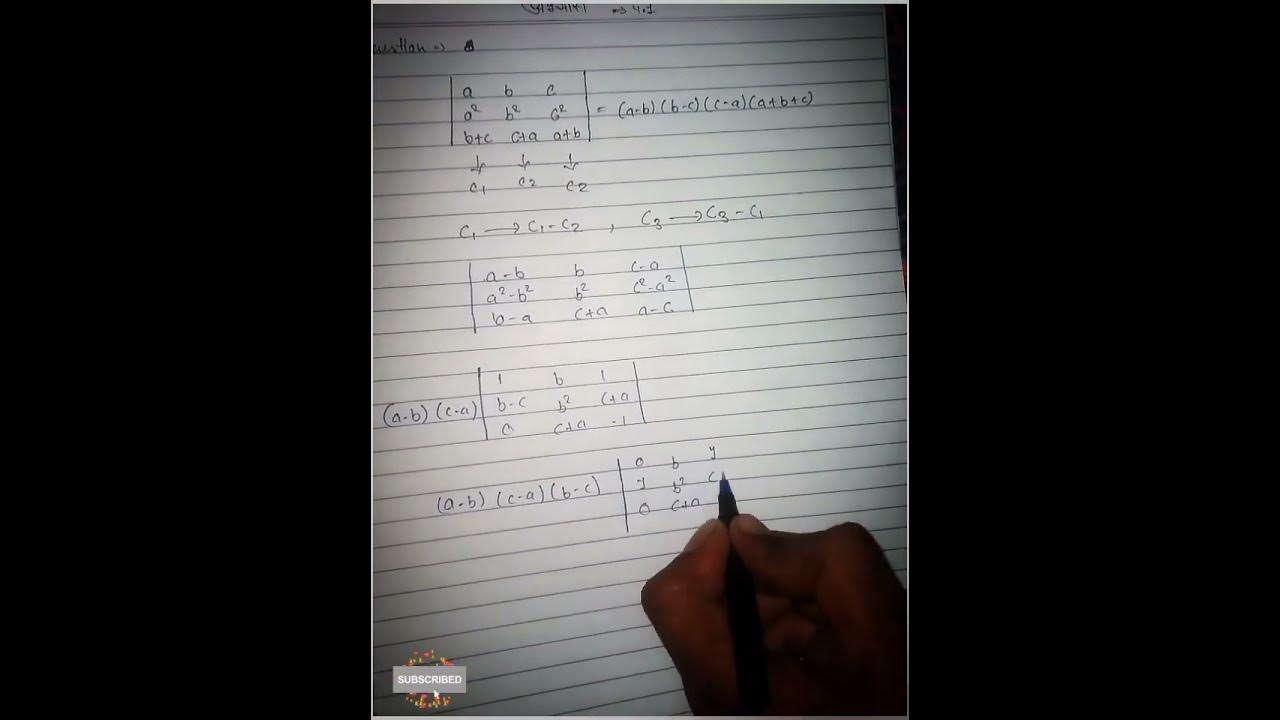 प्रश्नावली ⇒ 4.1
Question ⇒
| a b c |
| a² b² c² | = (a-b) (b-c) (c-a) (a+b+c)
| b+c c+a a+b |
↓ ↓ ↓
C₁ C₂ C₂
C₁ → C₁-C₂ , C₃ → C₃-C₁
| a-b b c-a |
| a²-b² b² c²-a² |
| b-a c+a a-c |
| 1 b 1 |
(a-b) (c-a) | b-c b² c+a |
| 0 c+a -1 |
| 0 b 1 |
(a-b) (c-a) (b-c) | 1 b² c
| 0 c+a
SUBSCRIBED